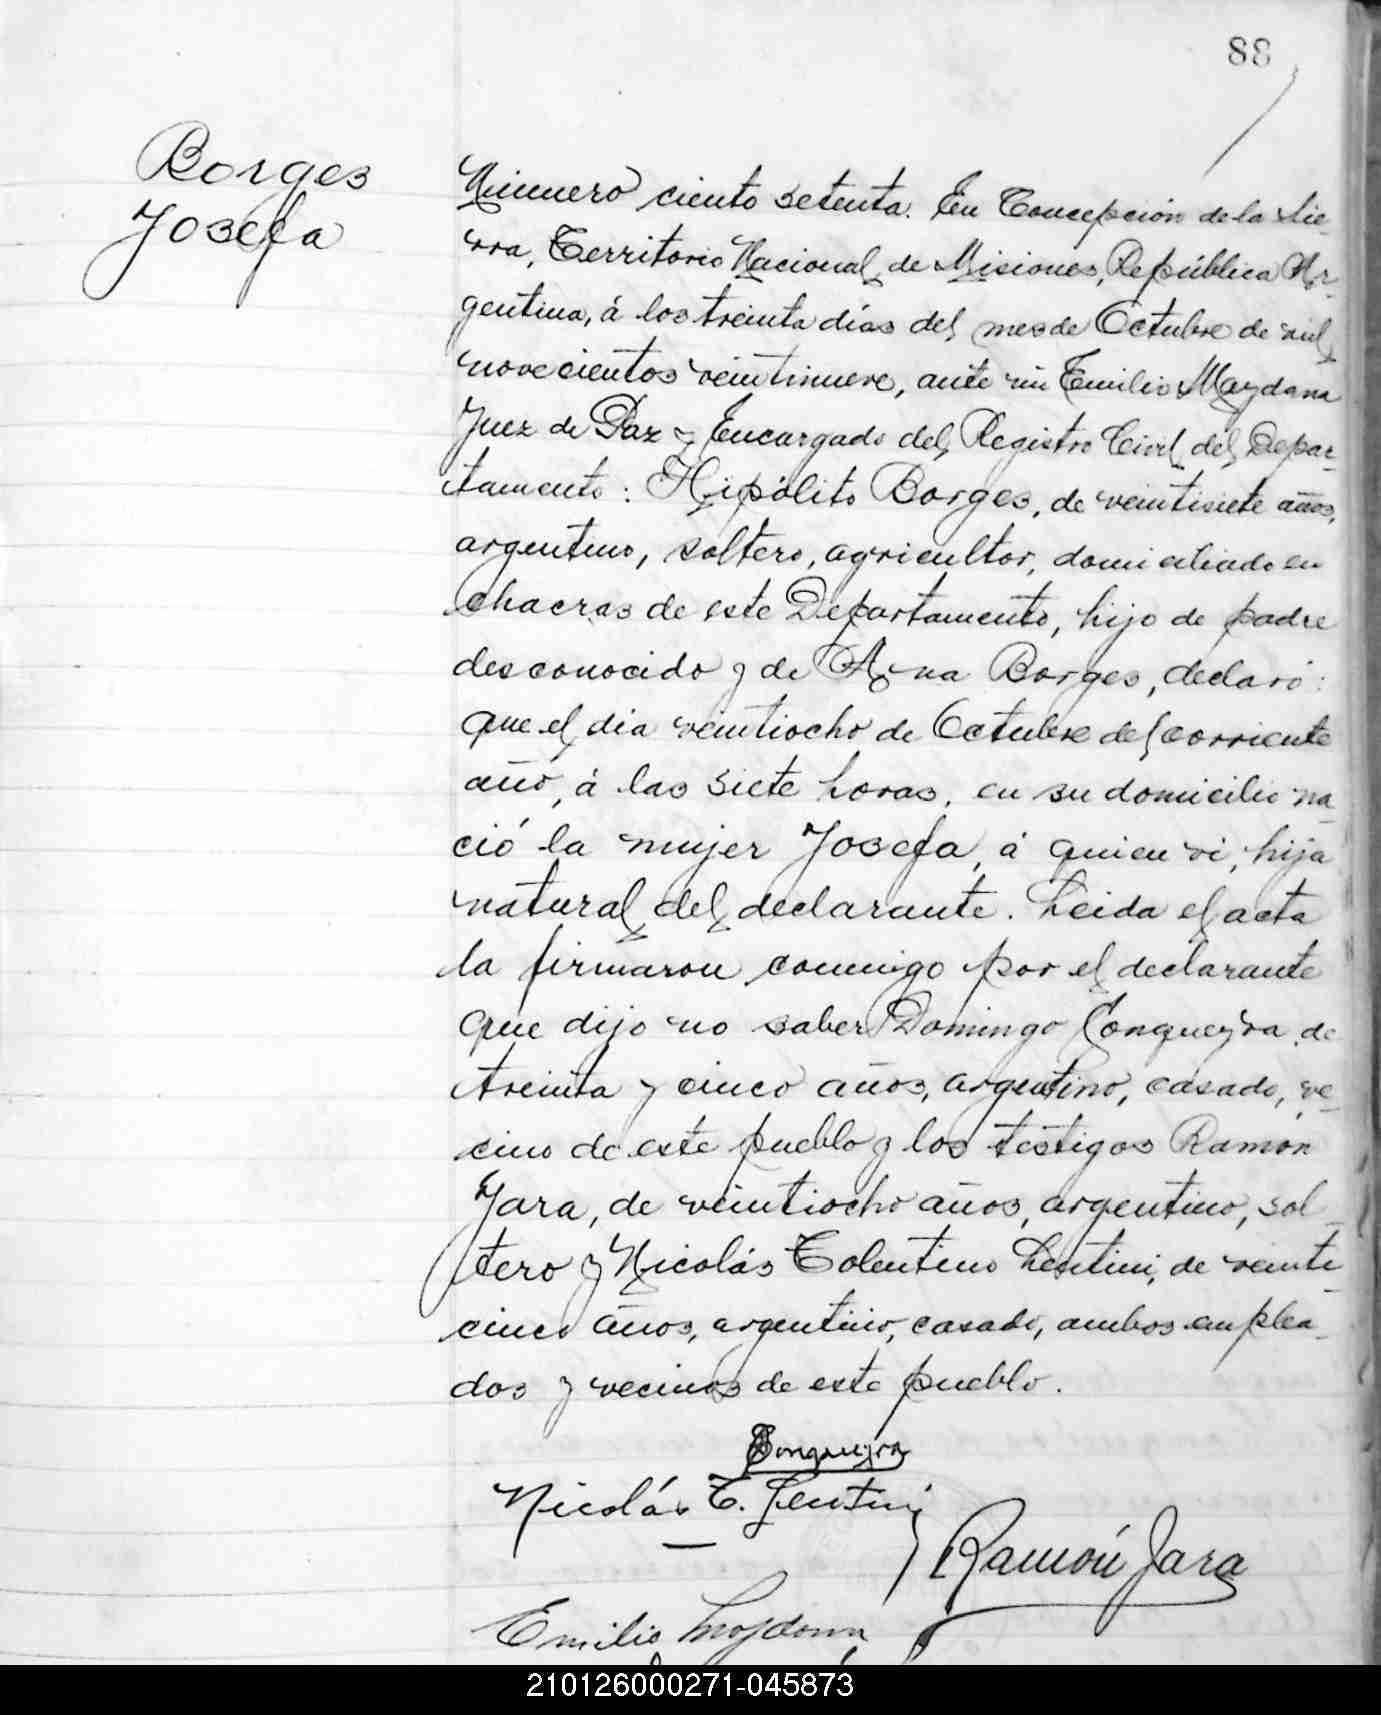 88
Borges
Josefa
Número ciento setenta. En Concepción de la Sie-
rra, Territorio Nacional de Misiones, República Ar-
gentina, á los treinta días del mes de Octubre de mil
novecientos veintinueve, ante mi Emilio Maydana
Juez de Paz y Encargado del Registro Civil del Depar-
tamento: Hipólito Borges, de veintisiete años,
argentino, soltero, agricultor, domiciliado en
chacras de este Departamento, hijo de padre
desconocido y de Ana Borges, declaró:
que el dia veintiocho de Octubre del corriente
año, á las siete horas, en su domicilio na-
ció la mujer Josefa, á quien vi, hija
natural del declarante. Leida el acta
la firmaron conmigo por el declarante
que dijo no saber Domingo Conqueyra, de
treinta y cinco años, argentino, casado, ve-
cino de este pueblo y los testigos Ramón
Jara, de veintiocho años, argentino, sol-
tero y Nicolás Tolentino Lentini, de veinte
cinco años, argentino, casado, ambos emplea-
dos y vecinos de este pueblo.
Conqueyra
Nicolás T. Lentini
Ramón Jara
Emilio Maydana
210126000271-045873